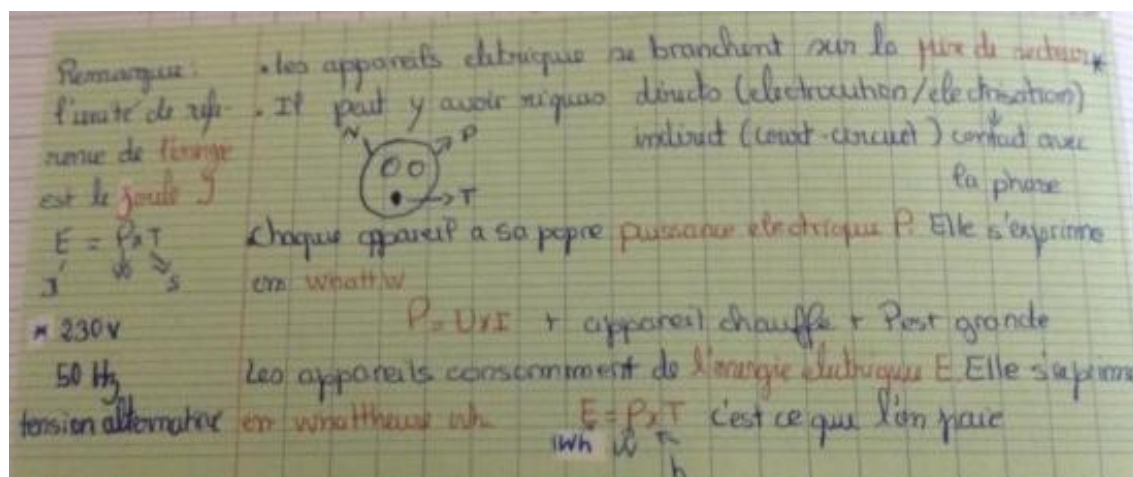 Remarque :
l'unité de réfé-
rence de l'énergie
est le joule J
E = P x T
J W S
* 230V
50 Hz
tension alternative
. les appareils eletrique se branchent sur la prise de secteur *
. Il peut y avoir risques directs (electrocution/electrisation)
indirect (court-circuit) contact avec
la phase
N P
T
Chaque appareil a sa popre puissance electrique P. Elle s'exprime
en whatt W
P = U x I + appareil chauffe + P est grande
Les appareils consomment de l'énergie életrique E. Elle s'exprime
en whattheure wh E = P x T c'est ce que l'on paie
Wh W h